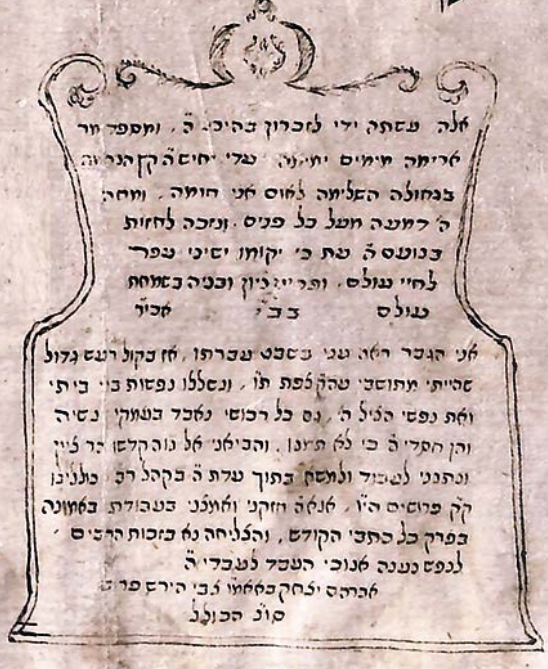 אלה עשתה ידי לזכרון בהיכל ה', ומספד מר
ארימה מימים ימימה עדי יחיש ה' קץ הנחמה
השלימה לאום אני חומה. ומחה
ה' דמעה מעל כל פנים. ונזכה לחזות
בנועם ה' עת כי יקומו ישיני עפר
לחיי עולם. ציון ובניה בשמחת
עולם בב"י אכי"ר
אני הגבר ראה עני בשבט עברתו, אז בקול רעש גדול
שהייתי מתושבי עהק צפת ת"ו, ונשללו נפשות בני ביתי
ואת נפשי הציל ה', גם כל רכושי נאבד בעמקי נשיה
והן חסדי ה' כי לא תמנו. והביאני אל נוה קדשו הר ציון
ונתנני לעבוד ולמשא בתוך עדת ה' בקהל רב כוללינו
ק"ק פרושים הי"ו, אנא ה' חזקני ואמצני בעבודת באמונה
בפרק כל כתבי הקודש, והצליחה נא בזכות הרבים
לנפש נענה אנוכי העבד לעבדי ה'
אברהם יצחק באאמו' צבי הירש
סו"נ הכולל